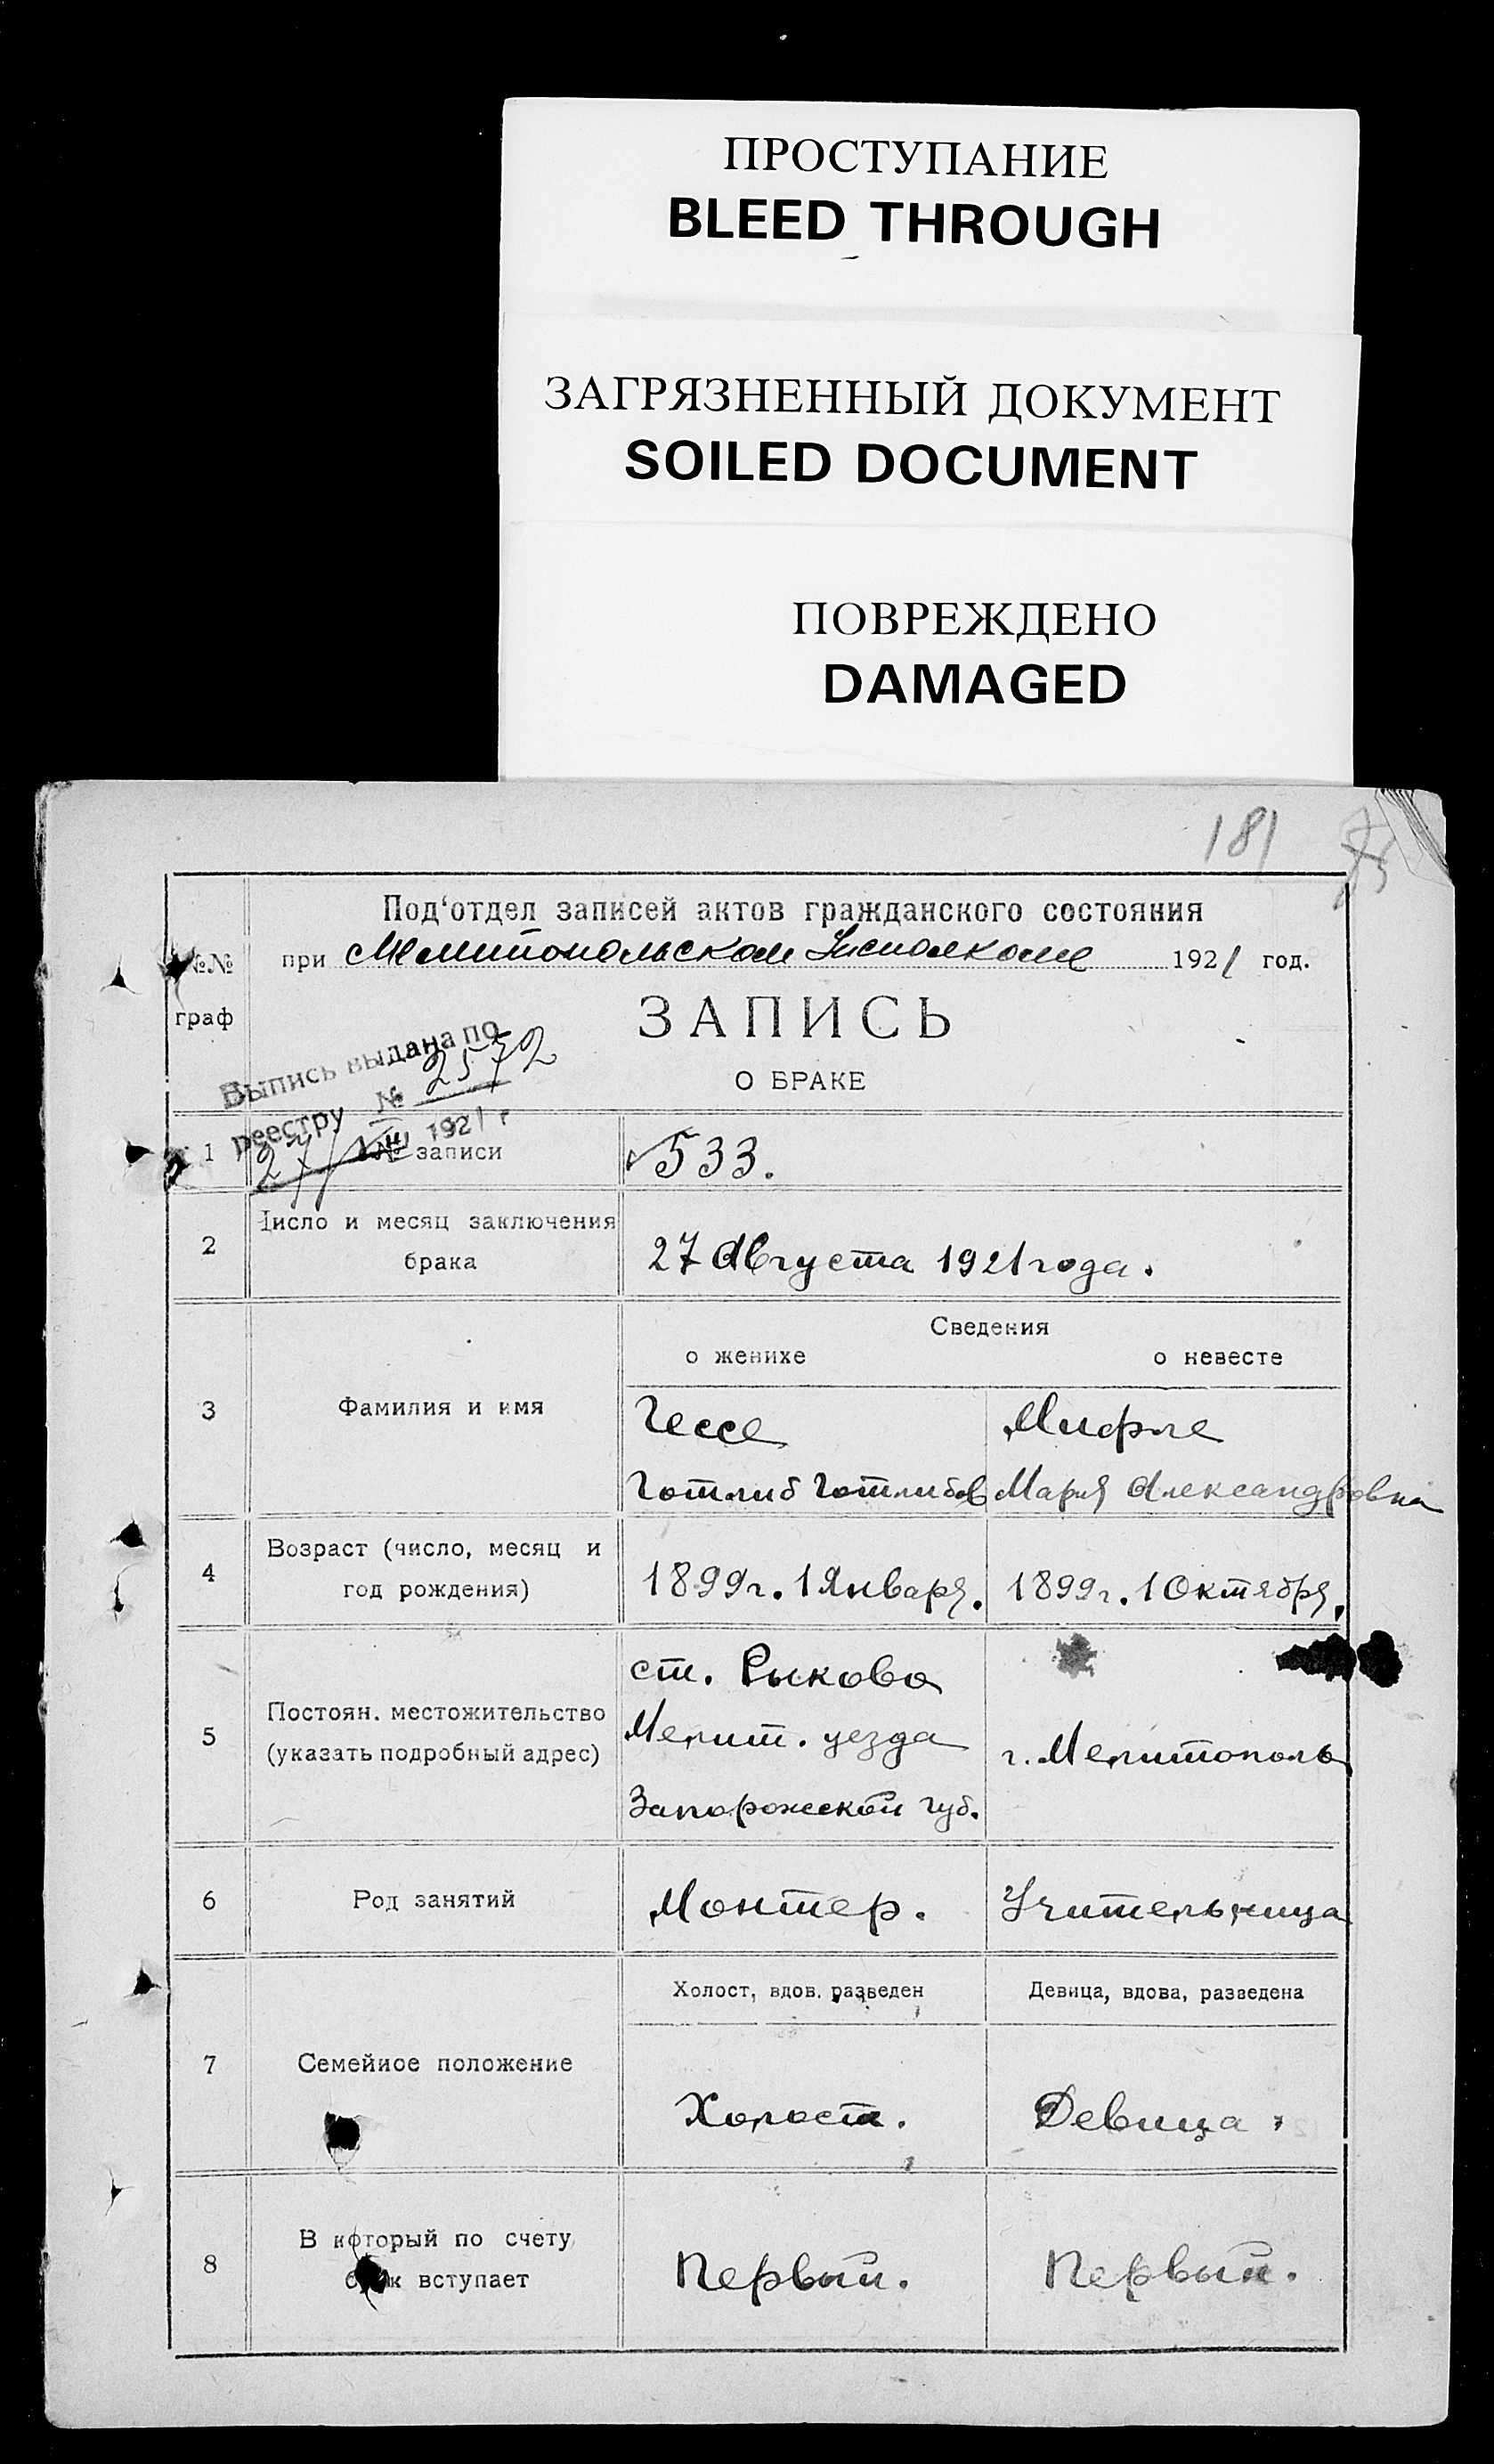 ПРОСТУПАНИЕ
BLEED THROUGH
ЗАГРЯЗНЕННЫЙ ДОКУМЕНТ
SOILED DOCUMENT
ПОВРЕЖДЕНО
DAMAGED
181
№№ граф
Под‘отдел записей актов гражданского состояния
при Мелитопольском Исполкоме 1921 год.
ЗАПИСЬ
О БРАКЕ
Выпись выдана по
реестру № 2572
27/VIII 1921 г
1 № записи 533.
2 Число и месяц заключения
брака
27 Августа 1921 года.
Сведения
о женихе о невесте
3 Фамилия и имя
Гессе Мифле
Готлиб Готлибов Мария Александровна
4 Возраст (число, месяц и
год рождения)
1899 г. 1 Января. 1899 г. 1 Октября.
5 Постоян. местожительство
(указать подробный адрес)
ст. Рыково
Мелит. уезда
Запорожской губ.
г. Мелитополь
6 Род занятий Монтер. Учительница
7 Семейное положение
Холост, вдов. разведен Девица, вдова, разведена
Холост. Девица.
8 В который по счету
брак вступает
Первый. Первый.